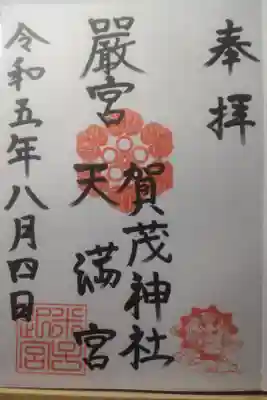 奉拝
賀茂神社
嚴宮
天満宮
令和五年八月四日